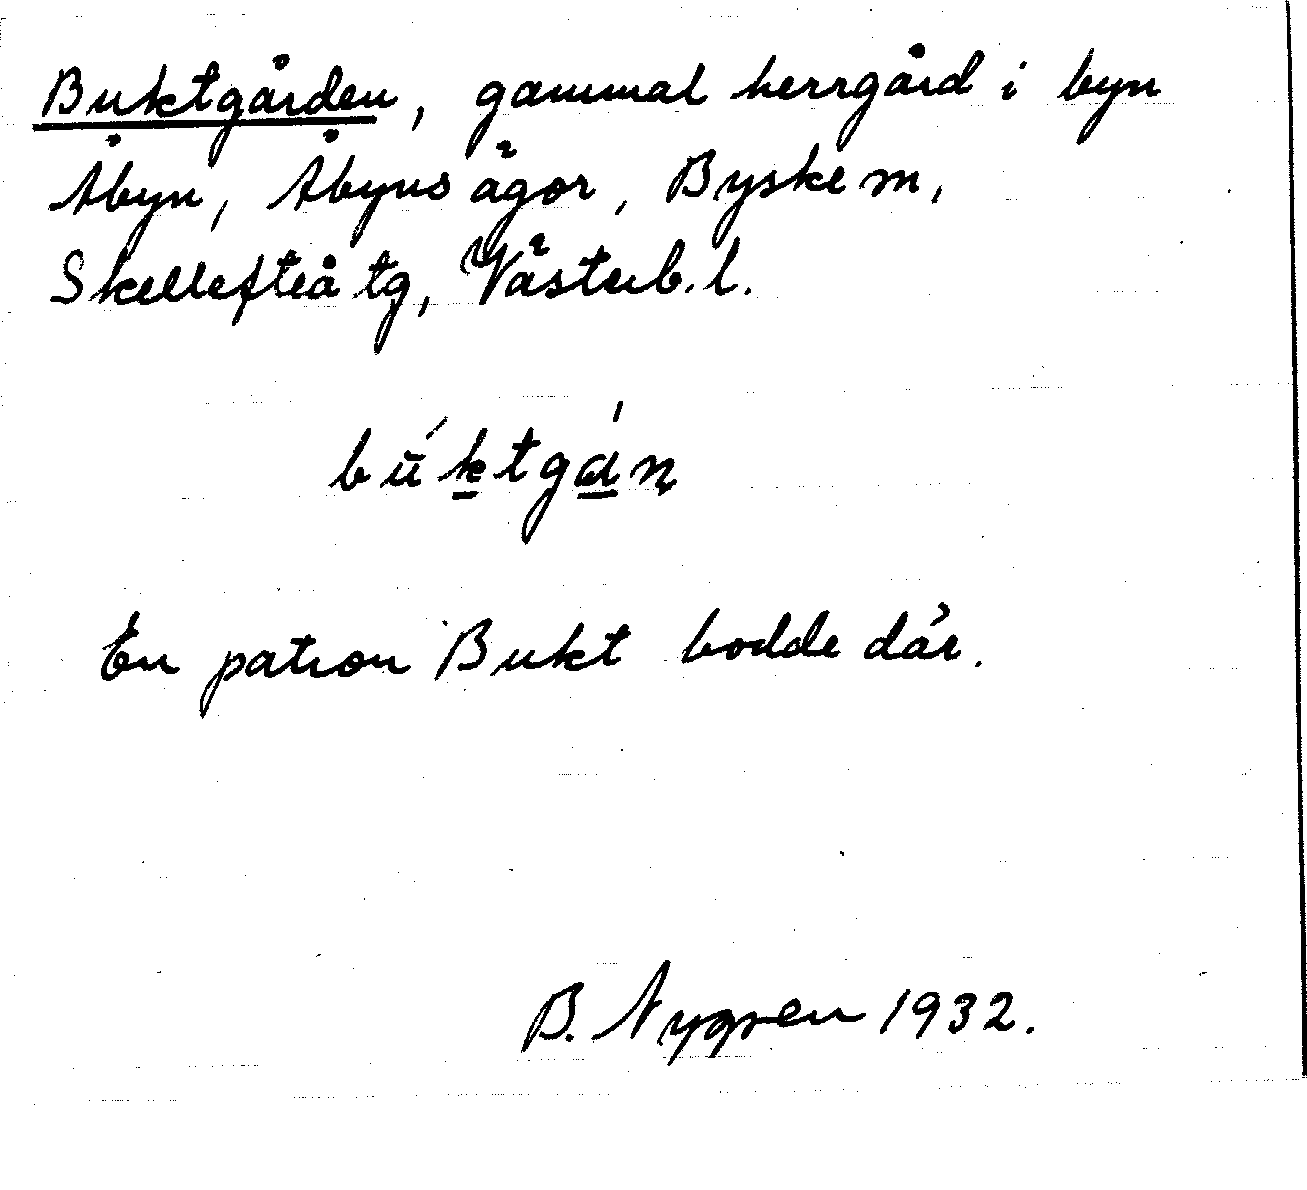 Buktgården, gammal herrgård i byn
Åbyn, Åbyns ägor, Byske sn,
Skellefteå tg, Västerb. l.
En patron Bukt bodde där.
B. Nygren 1932.